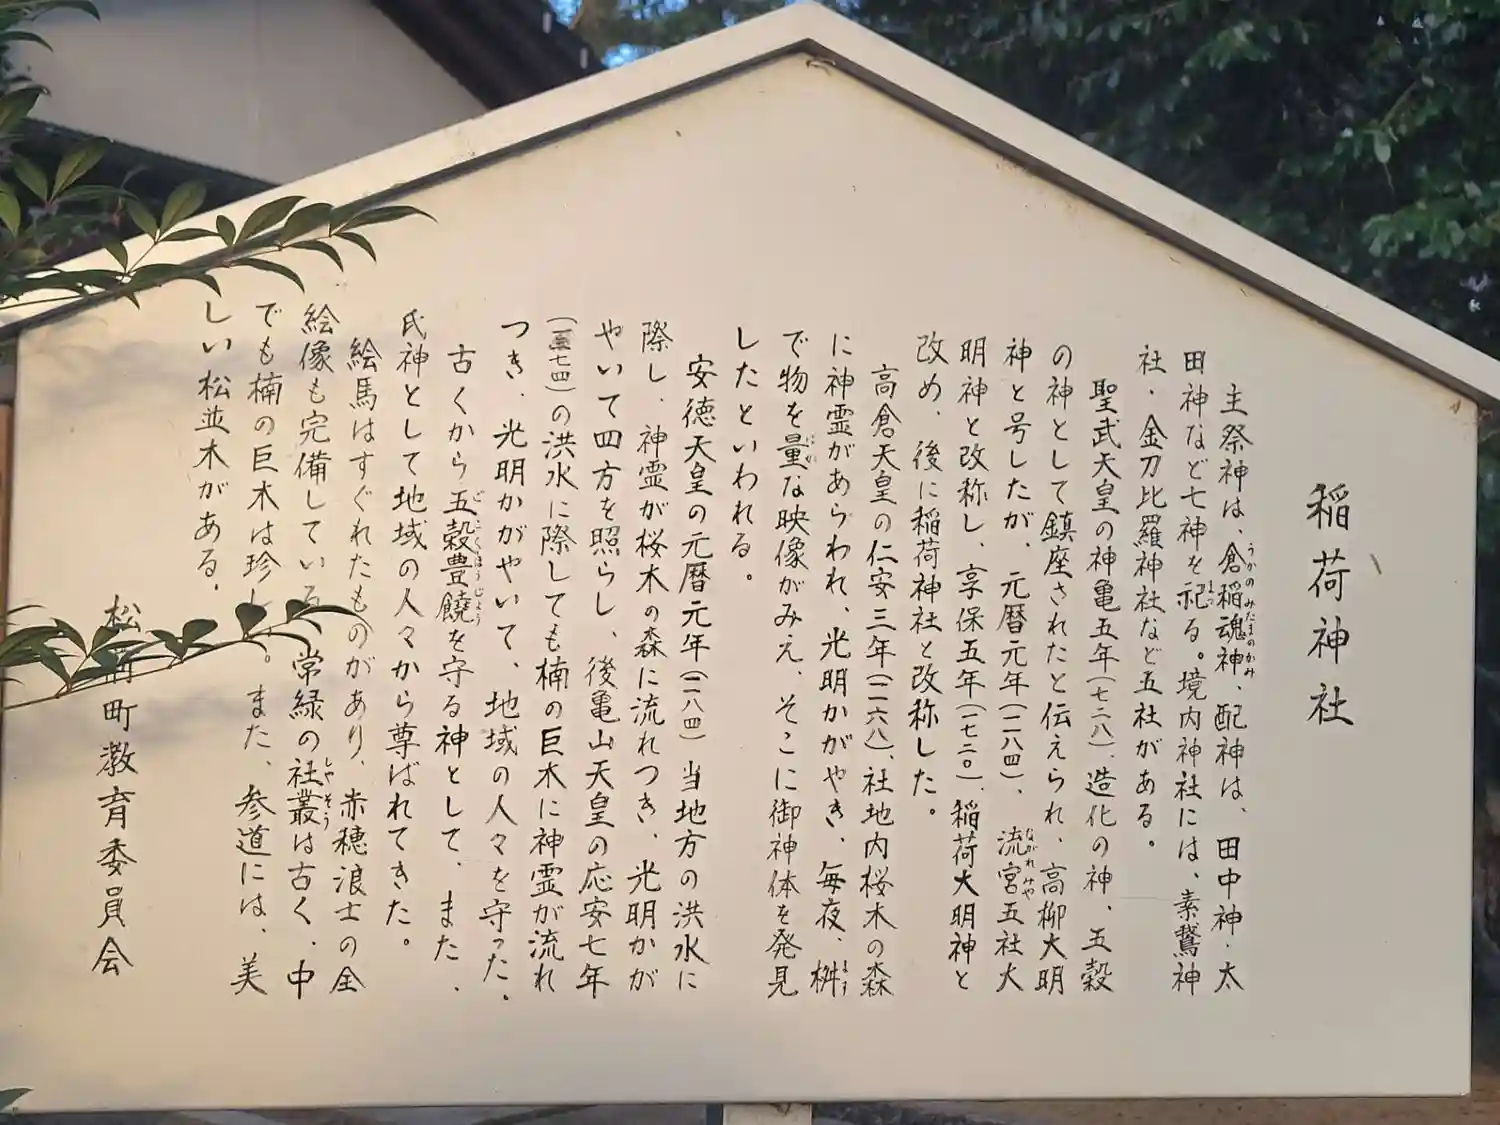 稲荷神社
主祭神は、倉稲魂神、配神は、田中神・太
田神など七神を祀る。境内神社には、素鵞神
社・金刀比羅神社など五社がある。
聖武天皇の神亀五年(七二八)、造化の神、五穀
の神として鎮座されたと伝えられ、高柳大明
神と号したが、元暦元年(一一八四)、流宮五社大
明神と改称し、享保五年(一七二〇)、稲荷大明神と
改め、後に稲荷神社と改称した。
高倉天皇の仁安三年(一一六八)、社地内桜木の森
に神霊があらわれ、光明かがやき、毎夜、桝
で物を量な映像がみえ、そこに御神体を発見
したといわれる。
安徳天皇の元暦元年(一一八四)当地方の洪水に
際し、神霊が桜木の森に流れつき、光明かが
やいて四方を照らし、後亀山天皇の応安七年
(一三七四)の洪水に際しても楠の巨木に神霊が流れ
つき、光明かがやいて、地域の人々を守った。
古くから五穀豊饒を守る神として、また、
氏神として地域の人々から尊ばれてきた。
絵馬はすぐれたものがあり、赤穂浪士の全
絵像も完備している 常緑の社叢は古く、中
でも楠の巨木は珍し 。また、参道には、美
しい松並木がある。
松前町教育委員会